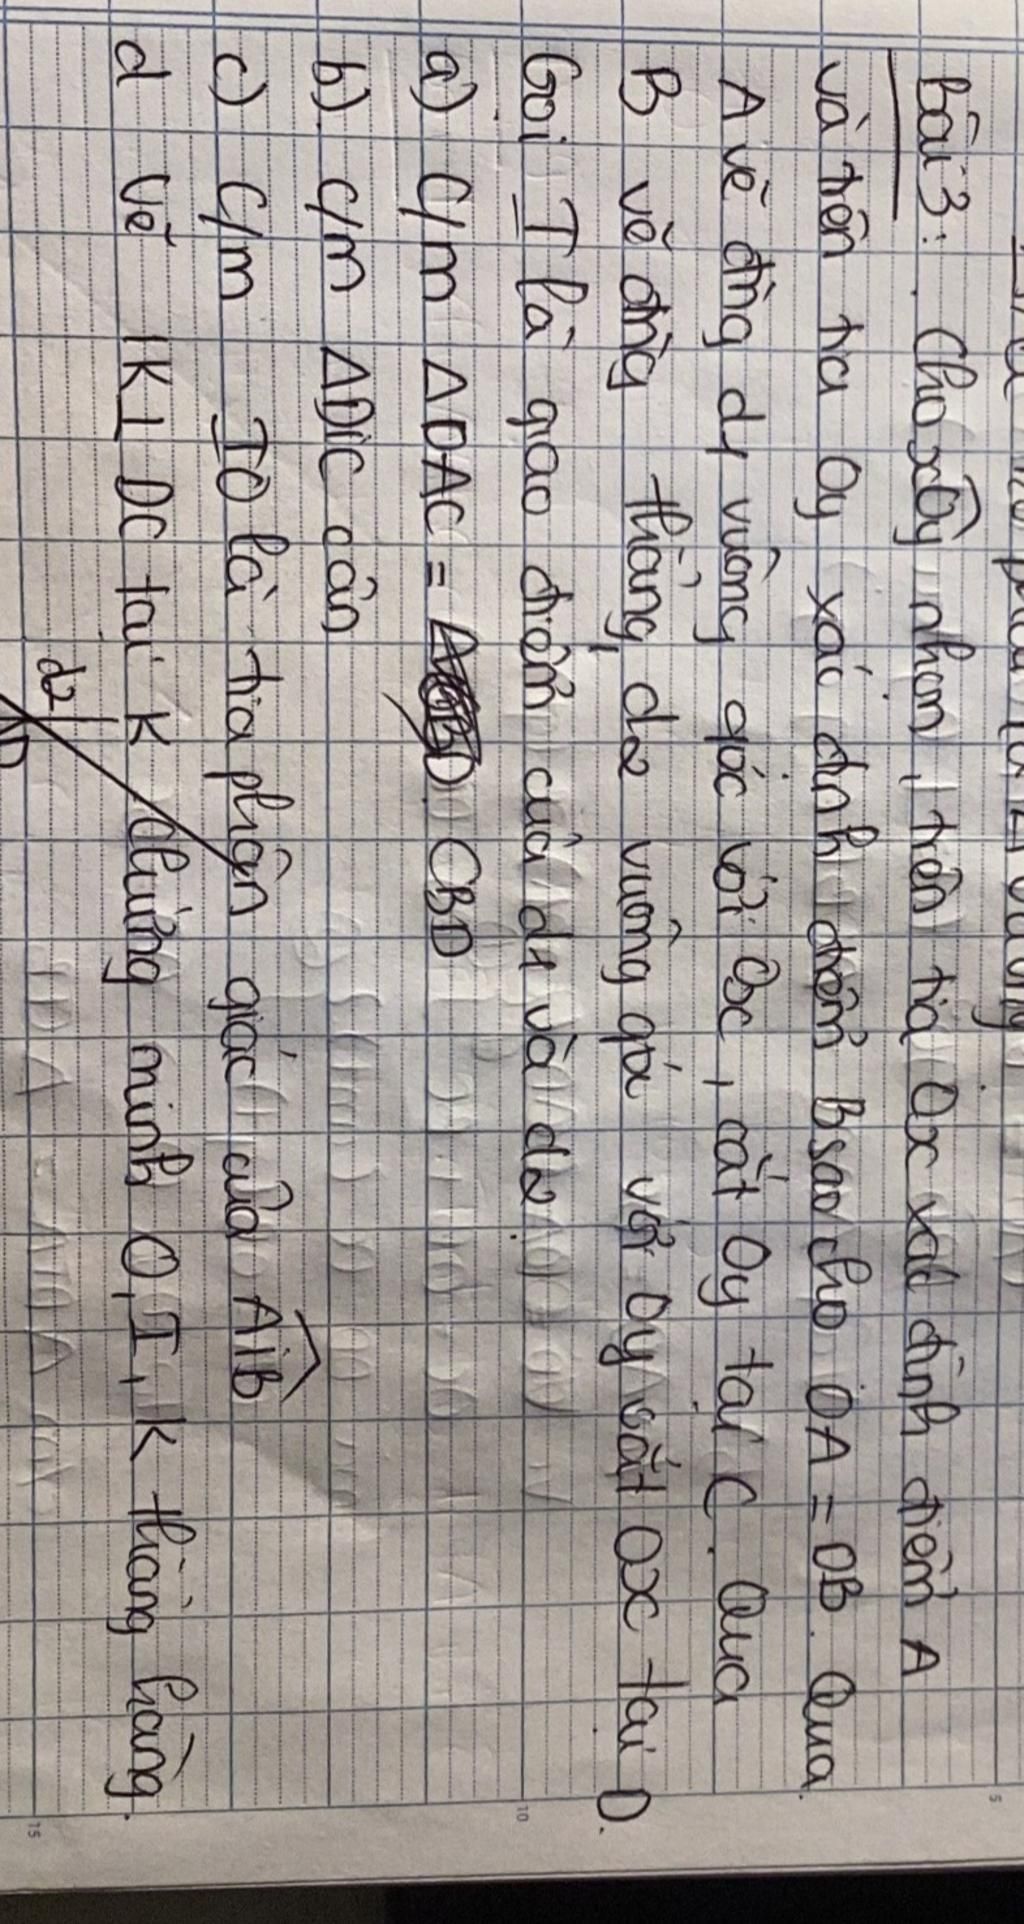 Bài 3: Cho xOy nhọn, trên tia Ox xác định điểm A
và trên tia Oy xác định điểm B sao cho OA = OB. Qua
A vẽ đng d1 vuông góc với Ox, cắt Oy tại C. Qua
B vẽ đng thẳng d2 vuông góc với Oy cắt Ox tại D.
Gọi I là giao điểm của d1 và d2.
a) C/m Δ DAC = CBD
b) C/m ΔDIC cân
c) C/m IO là tia phân giác của AIB
d Vẽ IK⊥ DC tại K chứng minh O, I, K thẳng hàng.
d2
D